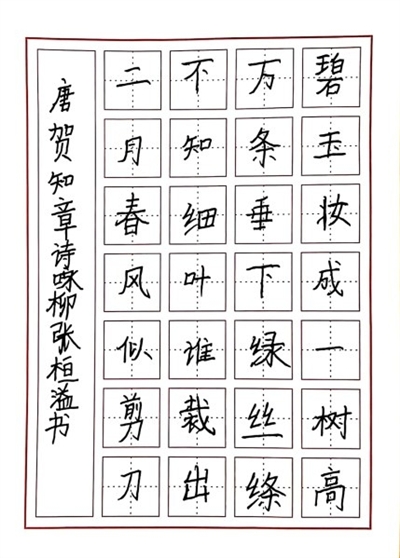 碧玉妆成一树高
万条垂下绿丝绦
不知细叶谁裁出
二月春风似剪刀
唐贺知章诗咏柳张桓溢书